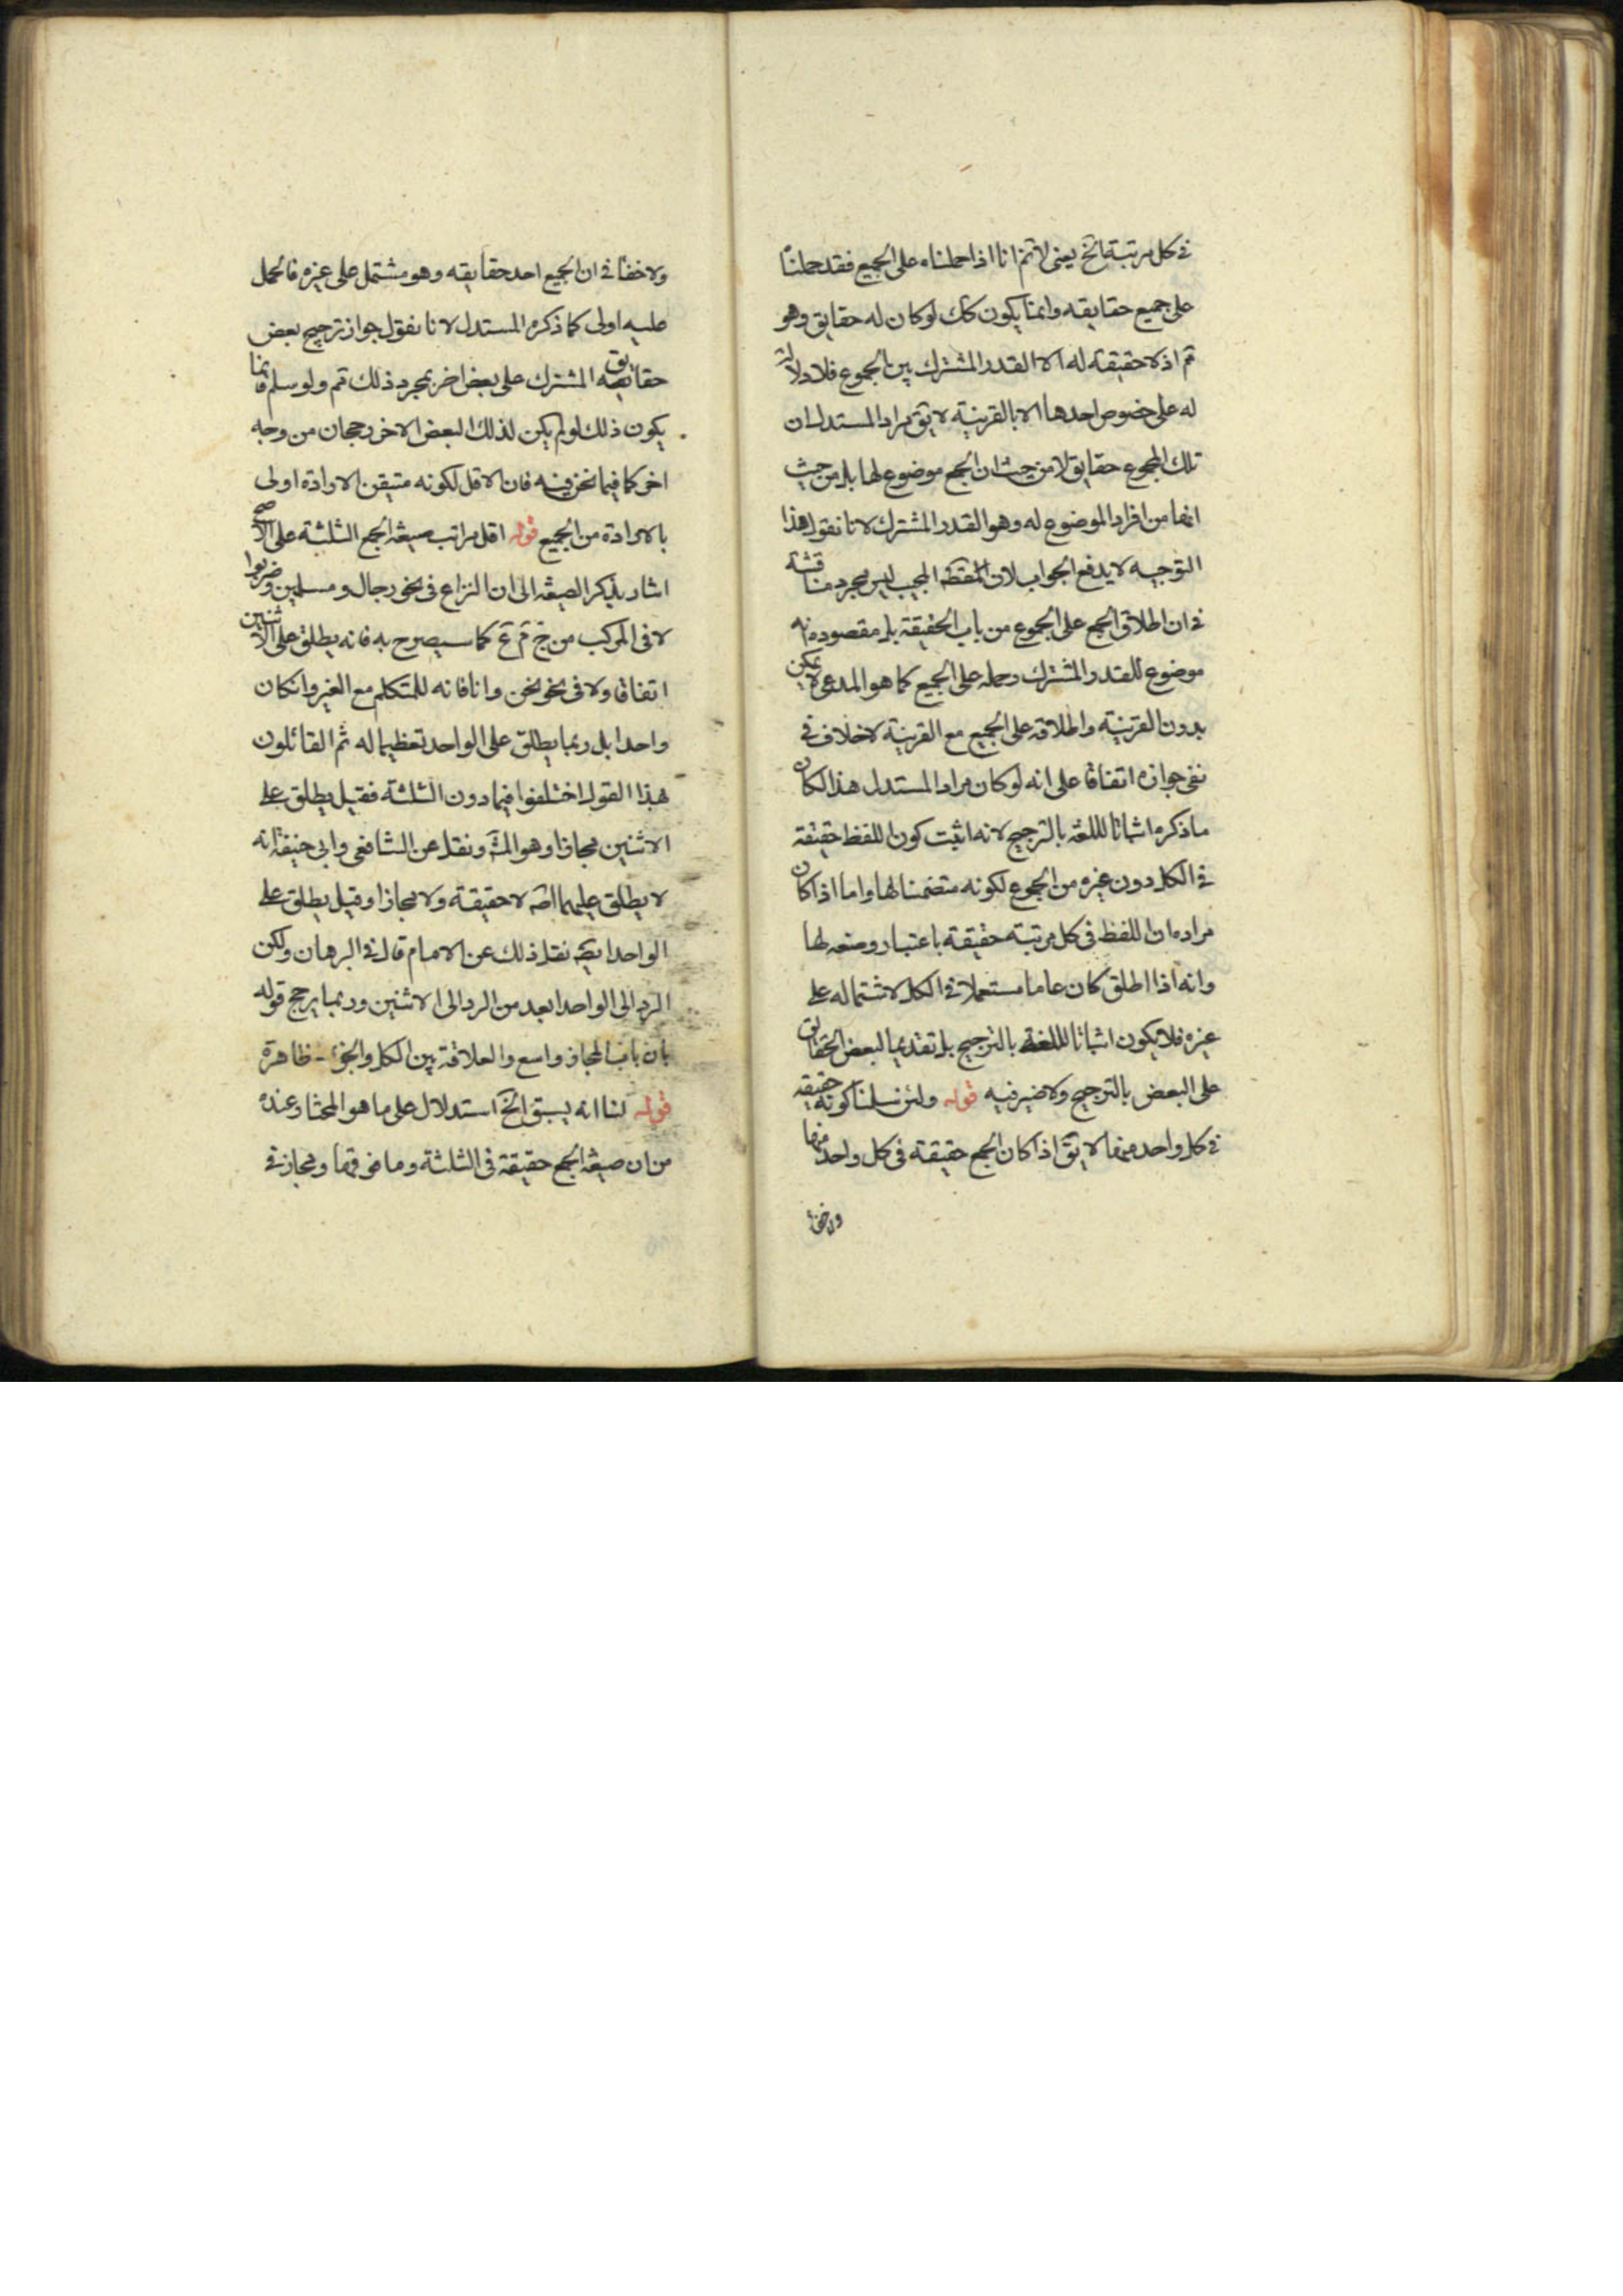 في كل مرتبة الخ يعنى لانم انا اذا حملناه على الجميع فقد حملنا
على جميع حقايقه وانما يكون كك لو كان له حقايق وهو
تم اذ لا حقيقة له الا القدر المشترك بين الجموع فلا دلالة
له على خصوص احدها الا بالقرينة لا يق مراد المستدل ان
تلك الجموع حقايق لا من حيث ان الجمع موضوع لها بل من حيث
انها من افراد الموضوع له وهو القدر المشترك لانا نقول هذا
التوجيه لا يدفع الجواب لان المجيب ليس مجرد مناقشة
في ان اطلاق الجمع على الجموع من باب الحقيقة بل مقصوده انه
موضوع للقدر المشترك وحمله على الجميع كما هو المدعى لا يمكن
بدون القرينة واطلاقه على الجميع مع القرينة لا خلاف في
نفى جوازه اتفاقا على انه لو كان مراد المستدل هذا لكان
ما ذكره اثباتا لللغة بالترجيح لانه اثبت كون اللفظ حقيقة
في الكل دون غيره من الجموع لكونه متضمنا لها واما اذا كان
مراده ان اللفظ فى كل مرتبة حقيقة باعتبار وضعه لها
وانه اذا اطلق كان عاما مستعملا في الكل لاشتماله على
غيره فلا يكون اثباتا لللغة بالترجيح بل تقديما لبعض الحقايق
على البعض بالترجيح ولا ضير فيه قوله ولئن سلمنا كونه حقيقة
في كل واحد منها لا يق اذا كان الجمع حقيقة فى كل واحد منها
ولا خفا
ولا خفا في ان الجميع احد حقايقه وهو مشتمل على غيره فالحمل
عليه اولى كما ذكره المستدل لانا نقول جواز ترجيح بعض
حقايق المشترك على بعض اخر بمجرد ذلك تم ولو سلم فانما
يكون ذلك لو لم يكن لذلك البعض الاخر رجحان من وجه
اخر كما فيما نحن فيه فان الاقل لكونه متيقن الارادة اولى
بالارادة من الجميع قوله اقل مراتب صيغة الجمع الثلثة على الاصح
اشار بذكر الصيغة الى ان النزاع فى نحو رجال ومسلمين وضربوا
لا فى المركب من ج م ع كما سيصرح به فانه يطلق على الاثنين
اتفاقا ولا فى نحو نحن وانا فانه للمتكلم مع الغير وان كان
واحدا بل ربما يطلق على الواحد تعظيما له ثم القائلون
بهذا القول اختلفوا فيما دون الثلثة فقيل يطلق على
الاثنين مجازا وهو المش ونقل عن الشافعى وابى حنيفة انه
لا يطلق عليهما لا حقيقة ولا مجازا وقيل يطلق على
الواحد ايض نقل ذلك عن الامام قال في البرهان ولكن
الرد الى الواحد ابعد من الرد الى الاثنين وربما يرجح قوله
بان باب المجاز واسع والعلاقة بين الكل والجزء ظاهرة
قوله لنا انه يسبق الخ استدلال على ما هو المختار عنده
من ان صيغة الجمع حقيقة فى الثلثة وما فوقها ومجاز في